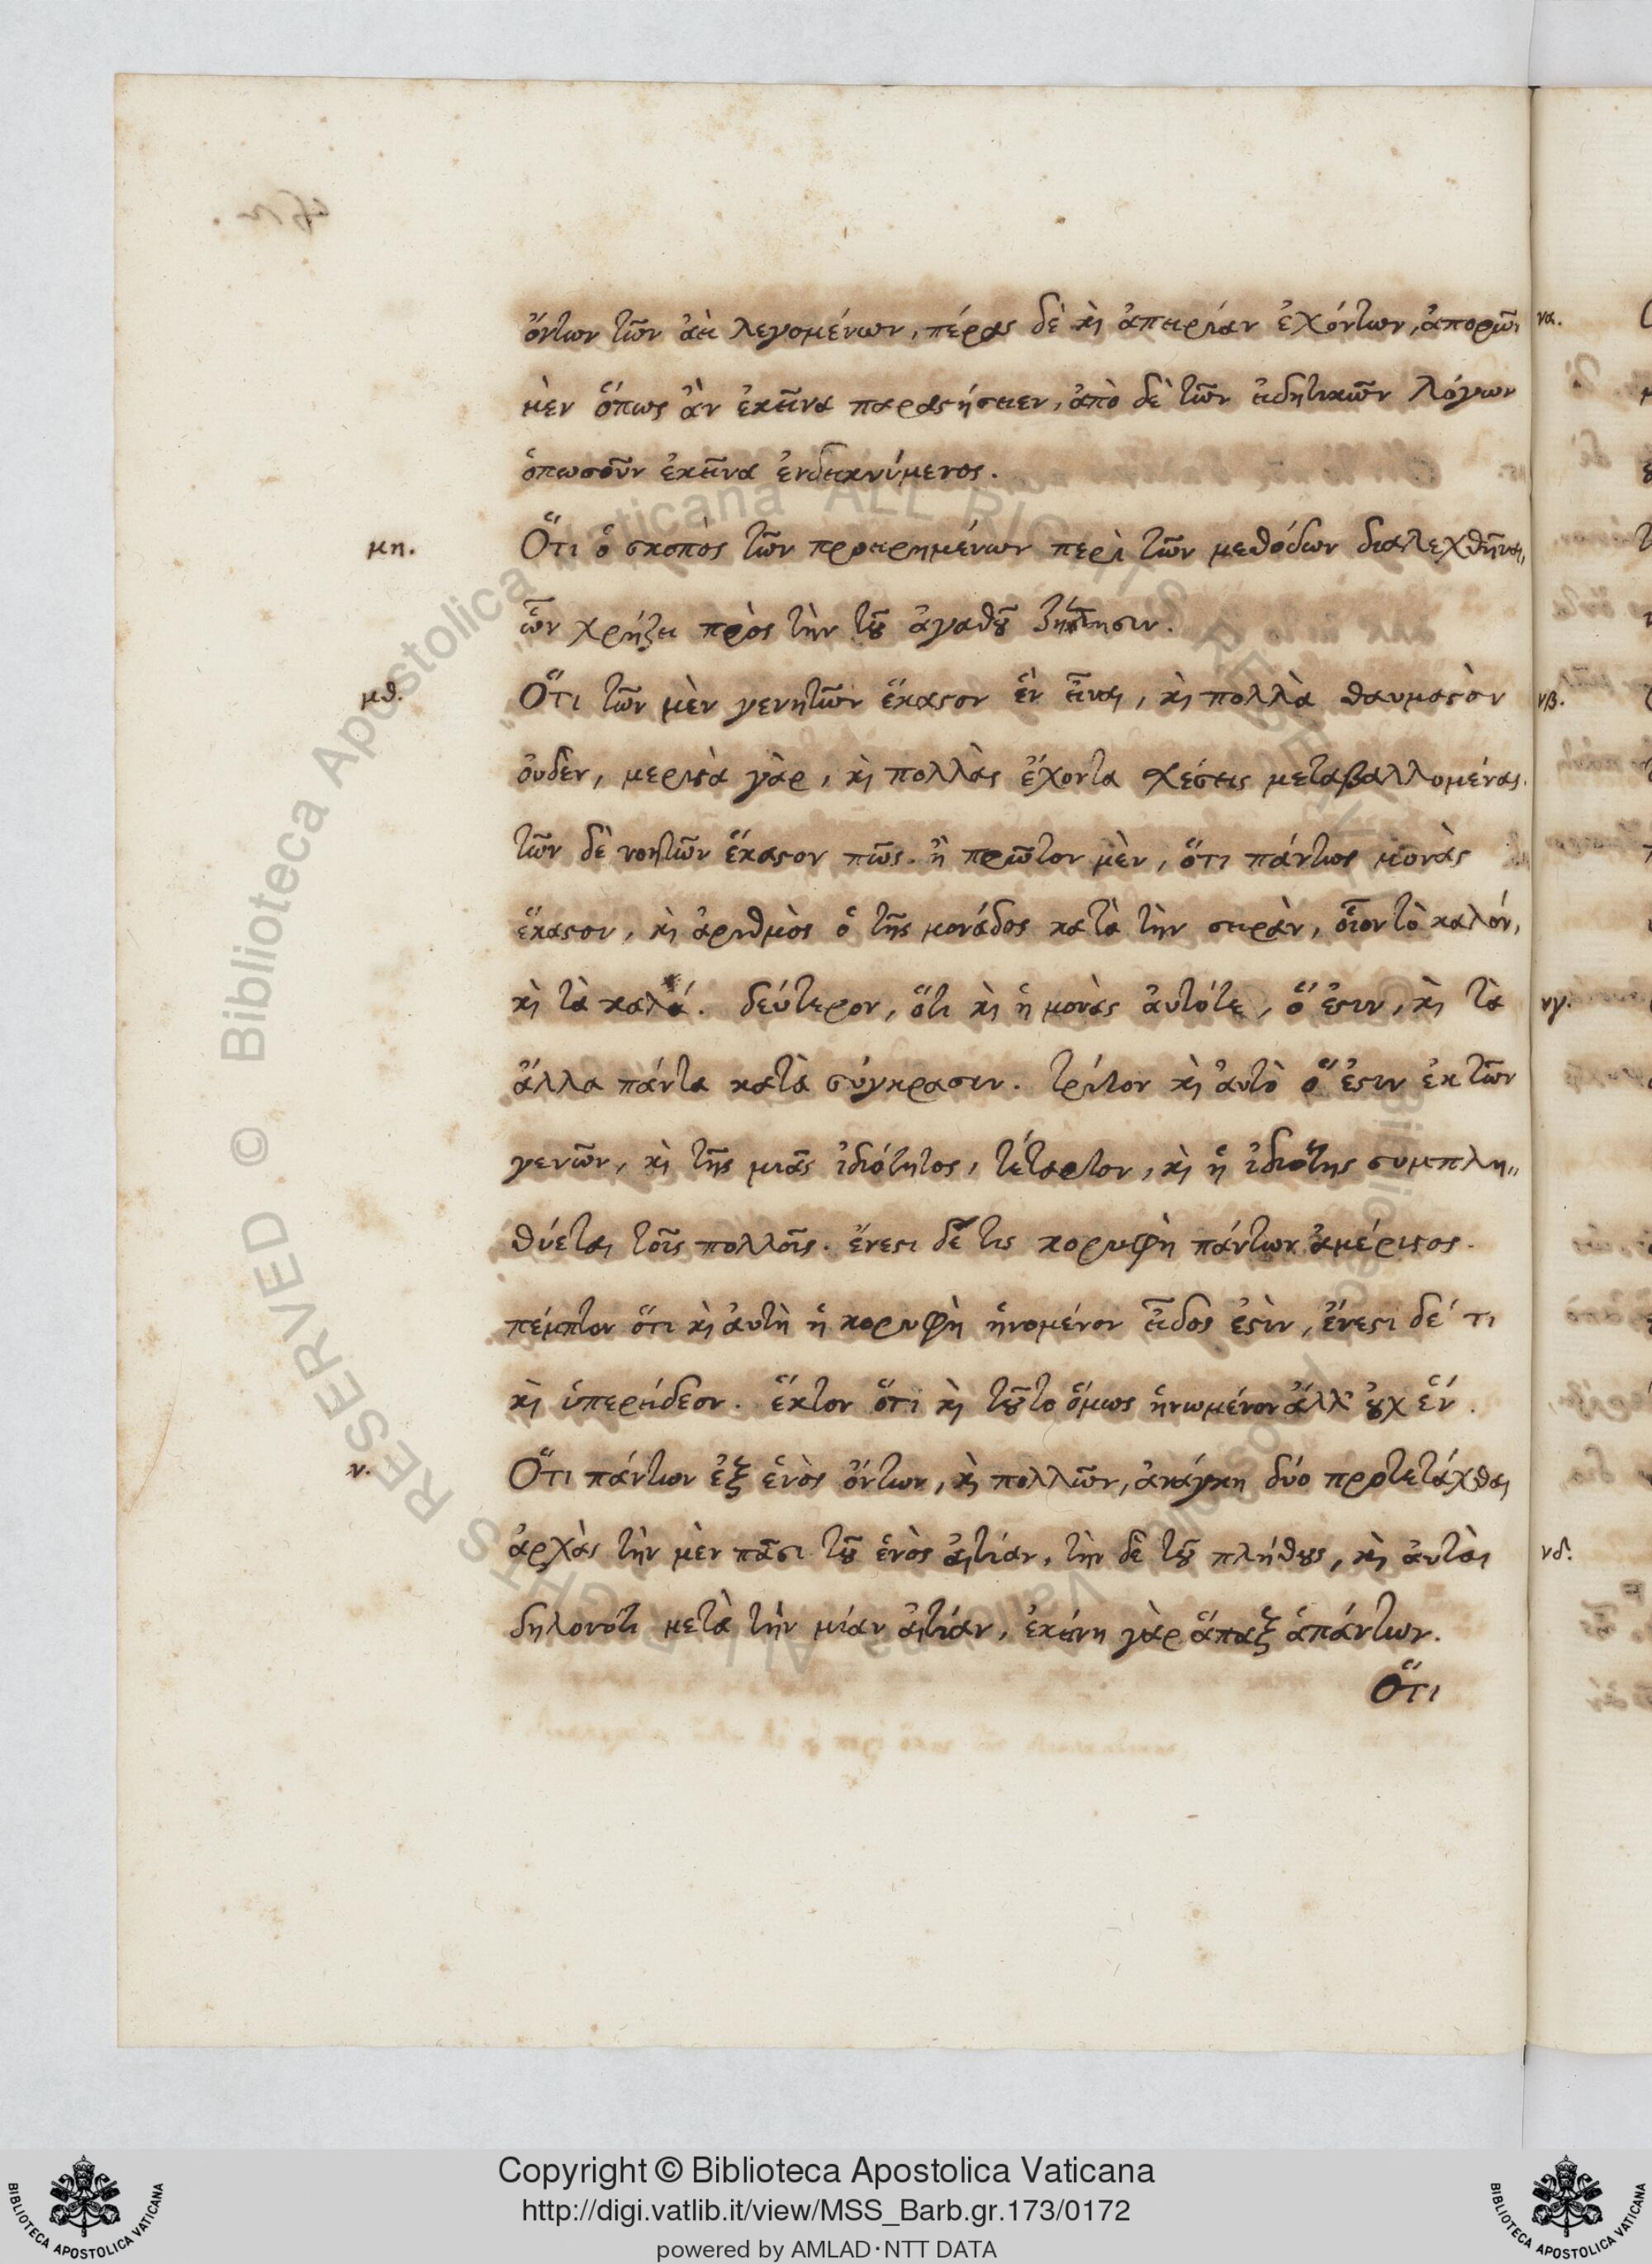 ὄντων τῶν ἀεὶ λεγομένων, πέρας δὲ καὶ ἀπειρίαν ἐχόντων, ἀπορῶν
μὲν ὅπως ἂν ἐκεῖνα παραστήσειεν, ἀπὸ δὲ τῶν εἰδητικῶν λόγων
ὁπωσοῦν ἐκεῖνα ἐνδεικνύμενος.
μη. Ὅτι ὁ σκοπὸς τῶν προειρημένων περὶ τῶν μεθόδων διαλεχθῆναι,
ὧν χρήζει πρὸς τὴν τοῦ ἀγαθοῦ ζήτησιν.
μθ. Ὅτι τῶν μὲν γενητῶν ἕκαστον ἓν εἶναι, καὶ πολλὰ θαυμαστὸν
οὐδὲν, μεριστὰ γὰρ, καὶ πολλὰς ἔχοντα σχέσεις μεταβαλλομένας.
τῶν δὲ νοητῶν ἕκαστον πῶς. ἢ πρῶτον μὲν, ὅτι πάντως μονὰς
ἕκαστον, καὶ ἀριθμὸς ὁ τῆς μονάδος κατὰ τὴν σειρὰν, οἷον τὸ καλόν,
καὶ τὰ καλά. δεύτερον, ὅτι καὶ ἡ μονὰς αὐτότε, ὅ ἐστιν, καὶ τὰ
ἄλλα πάντα κατὰ σύγκρασιν. τρίτον καὶ αὐτὸ ὅ ἐστιν ἐκ τῶν
γενῶν, καὶ τῆς μιᾶς ἰδιότητος, τέταρτον, καὶ ἡ ἰδιότης συμπλη„
θύεται τοῖς πολλοῖς. ἔνεστι δέ τις κορυφὴ πάντων ἀμέριστος.
πέμπτον ὅτι καὶ αὐτὴ ἡ κορυφὴ ἡνομένον εἶδος ἐστὶν, ἔνεστι δέ τι
καὶ ὑπερείδεον. ἕκτον ὅτι καὶ τοῦτο ὅμως ἡνωμένον ἀλλ' οὐχ ἕν.
ν. Ὅτι πάντων ἐξ ἑνὸς ὄντων, καὶ πολλῶν, ἀνάγκη δύο προτετάχθαι
ἀρχὰς τὴν μὲν πᾶσι τοῦ ἑνὸς αἰτίαν, τὴν δὲ τοῦ πλήθους, καὶ αὐταὶ
δηλονότι μετὰ τὴν μίαν αἰτίαν, ἐκείνη γὰρ ἅπαξ ἁπάντων.
Ὅτι
να.
νβ.
νγ.
νδ.
Copyright © Biblioteca Apostolica Vaticana
http://digi.vatlib.it/view/MSS_Barb.gr.173/0172
powered by AMLAD·NTT DATA
BIBLIOTECA APOSTOLICA VATICANA
BIBLIOTECA APOSTOLICA VATICANA